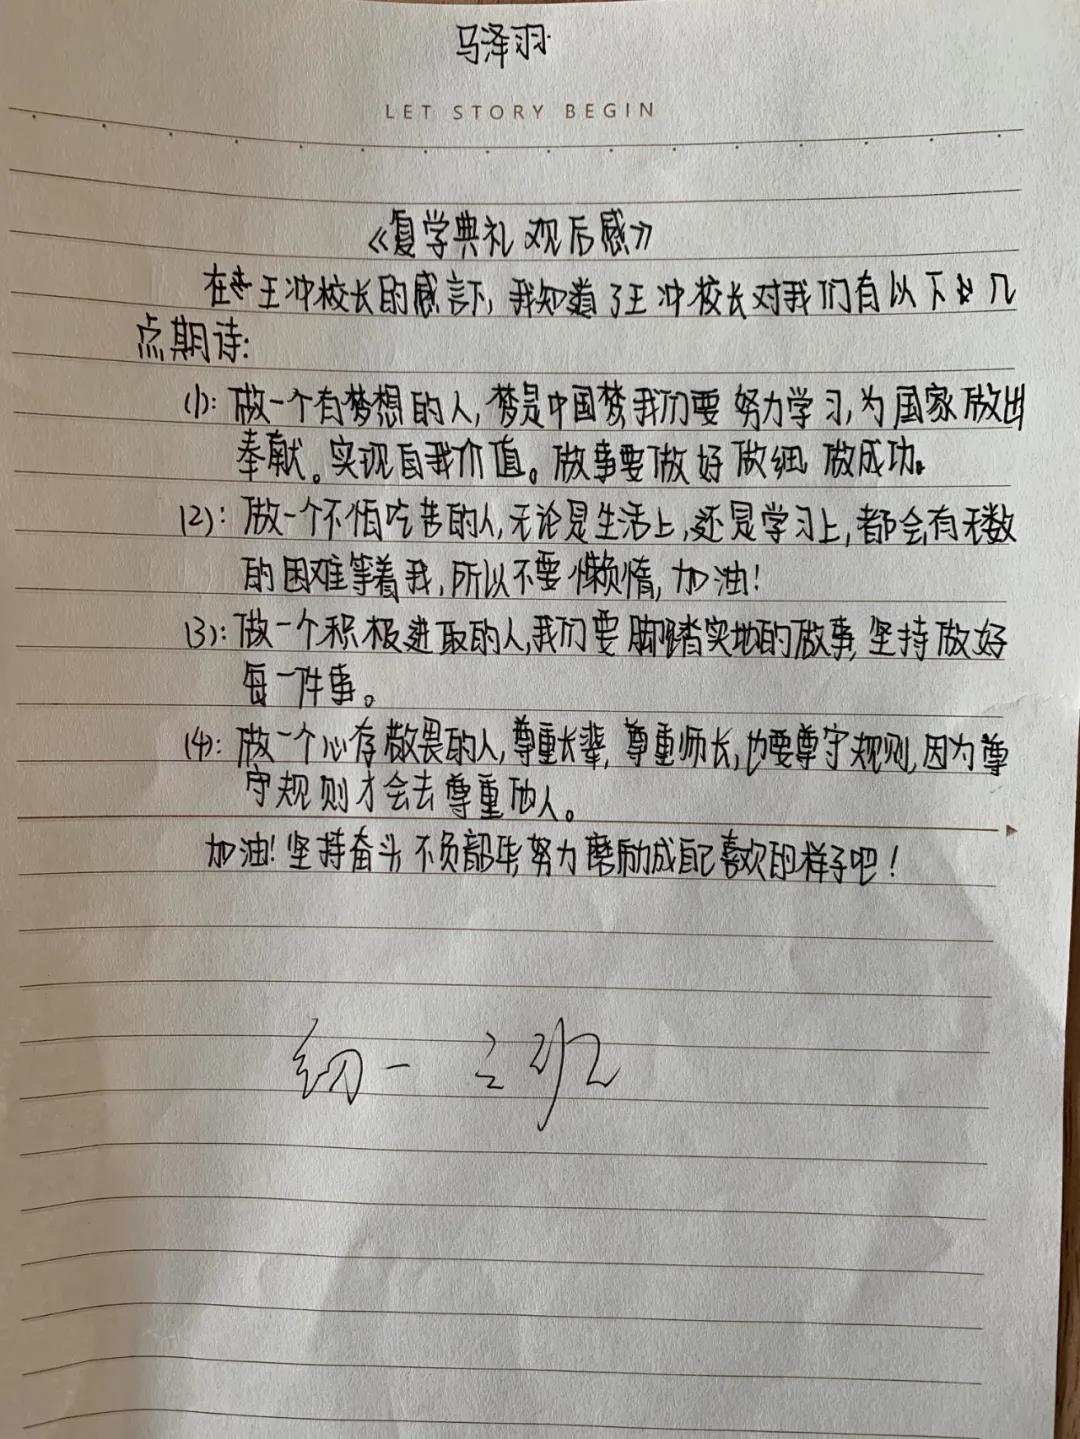 马泽羽
LET STORY BEGIN
《复学典礼观后感》
在王冲校长的感言下,我知道了王冲校长对我们有以下几
点期诗:
(1):做一个有梦想的人,梦是中国梦,我们要努力学习,为国家做出
奉献。实现自我价值。做事要做好做细做成功。
(2):做一个不怕吃苦的人,无论是生活上,还是学习上,都会有无数
的困难等着我,所以不要懒惰,加油!
(3):做一个积极进取的人,我们要脚踏实地的做事,坚持做好
每一件事。
(4):做一个心存敬畏的人,尊重长辈,尊重师长,也要尊守规则,因为尊
守规则才会去尊重他人。
加油!坚持奋斗,不负韶华,努力磨励成自己喜欢的样子吧!
初一 班